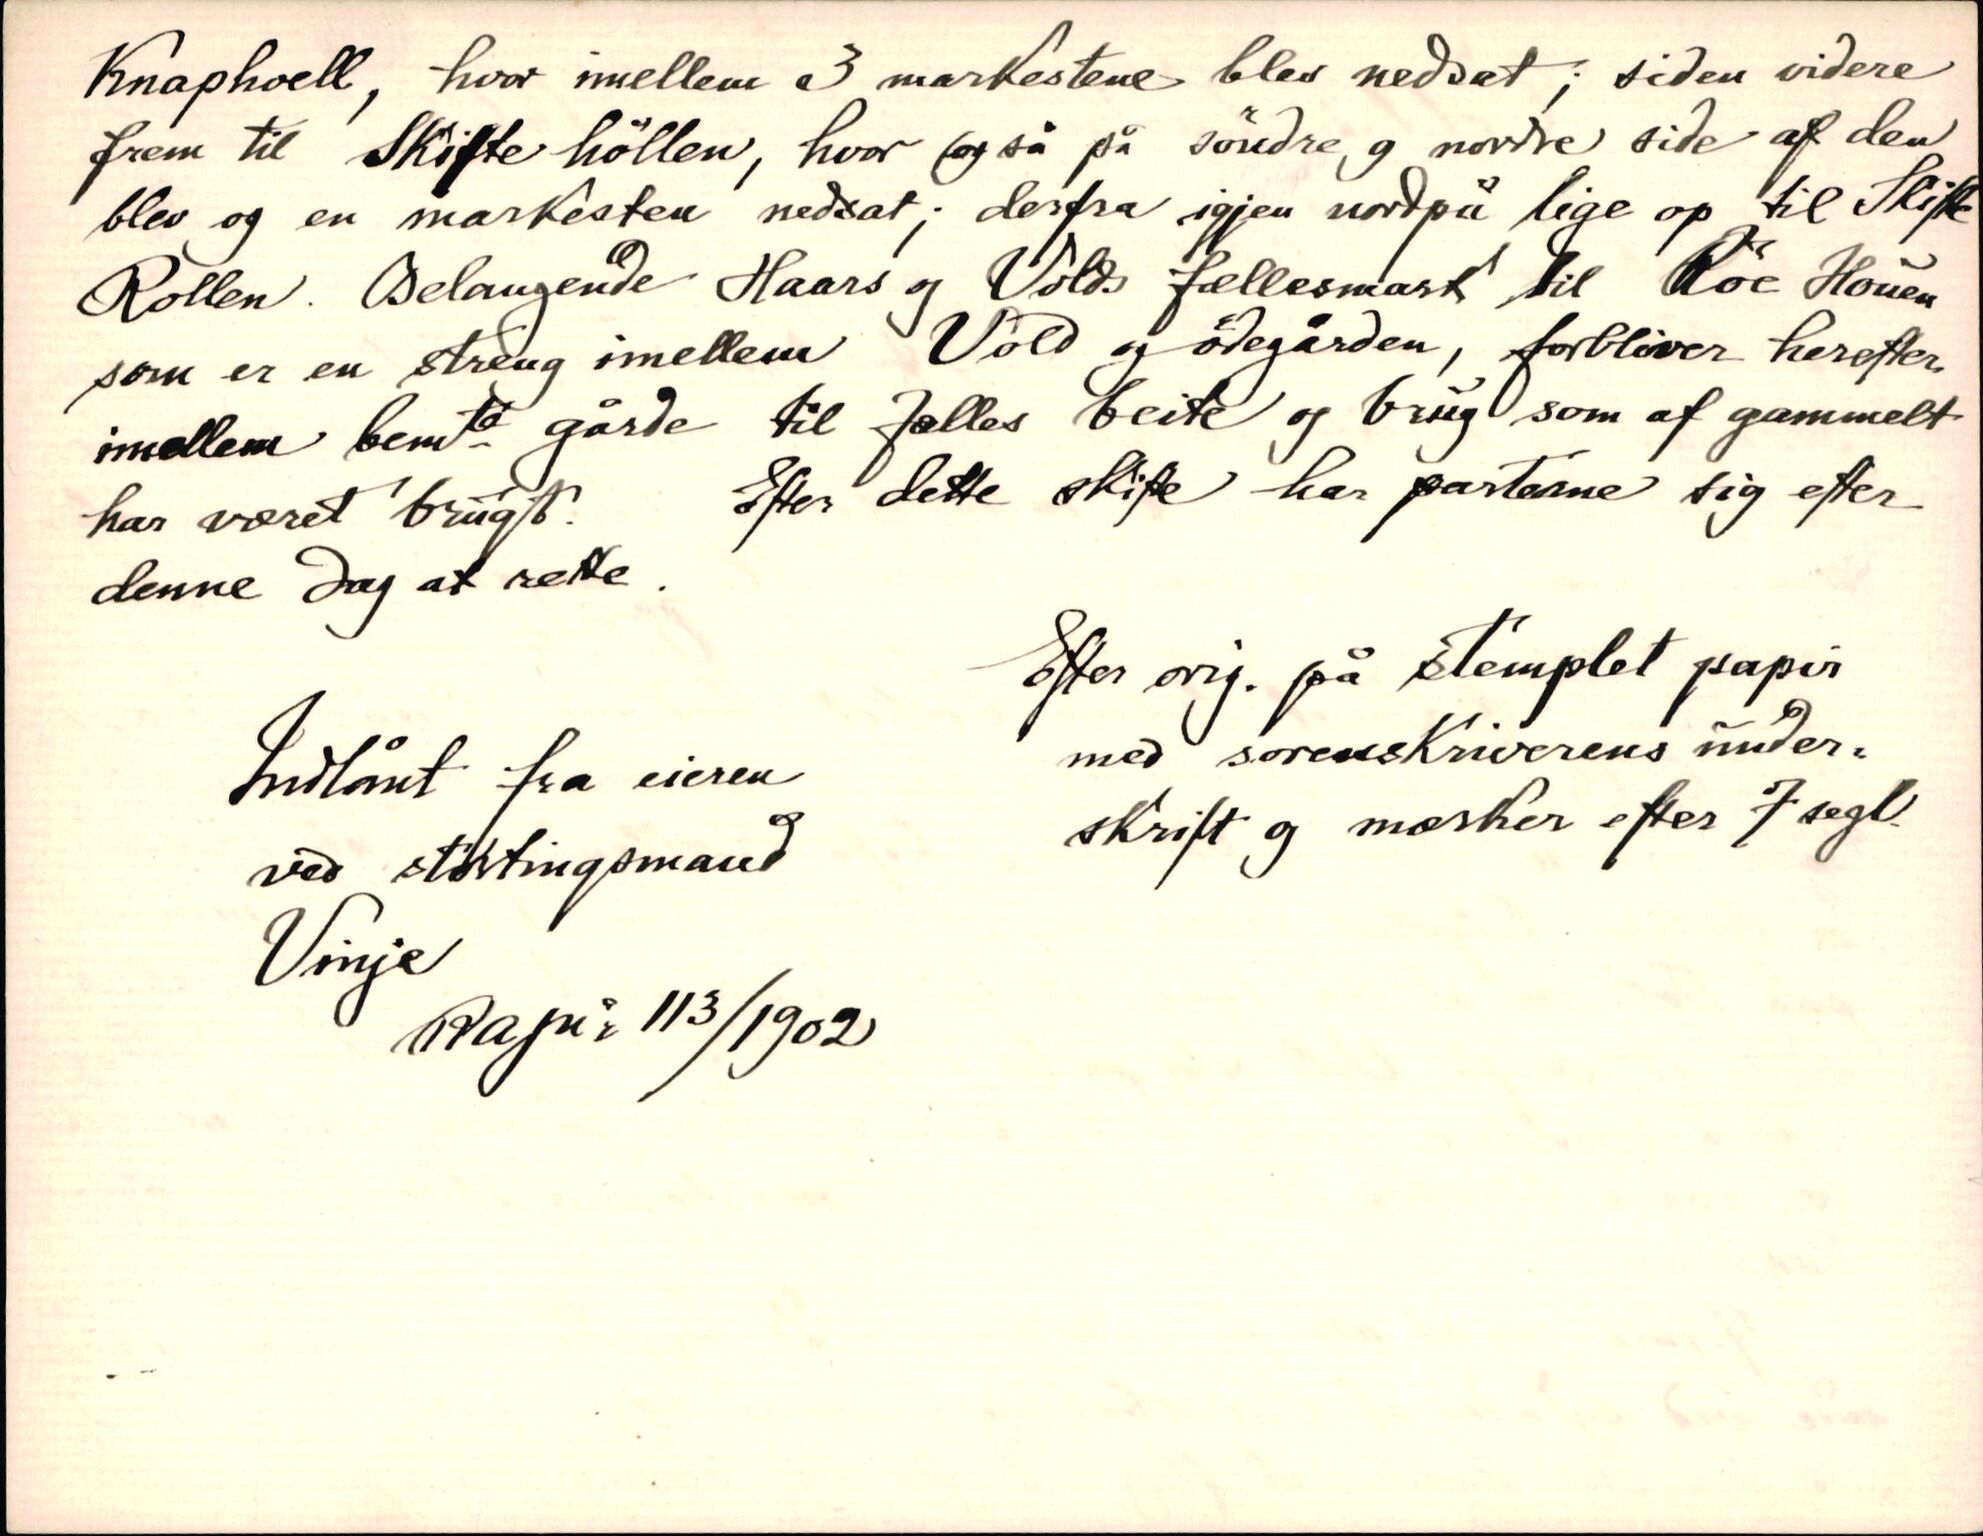 Knaphoell, hvor imellem 3 markestene blev nedsat; siden videre
frem til Skifte höllen, hvor også på söndre og nordre side af den
blev og en markesten nedsat; derfra igjen nordpå lige op til Skifte
Rollen. Belangende Haars og Volds fællesmark til Röe Houen
som er en streng imellem Vold og ödegården, forbliver herefter
imellem bemte gårde til fælles beite og brug som af gammelt
har været brugt. Efter dette skifte har parterne sig efter
denne dag at rette.
Efter orig. på stemplet papir
med sorenskriverens under-
skrift og mærker efter 7 segl.
Indlånt fra eieren
ved stortingsmand
Vinje
Rapir 113/1902